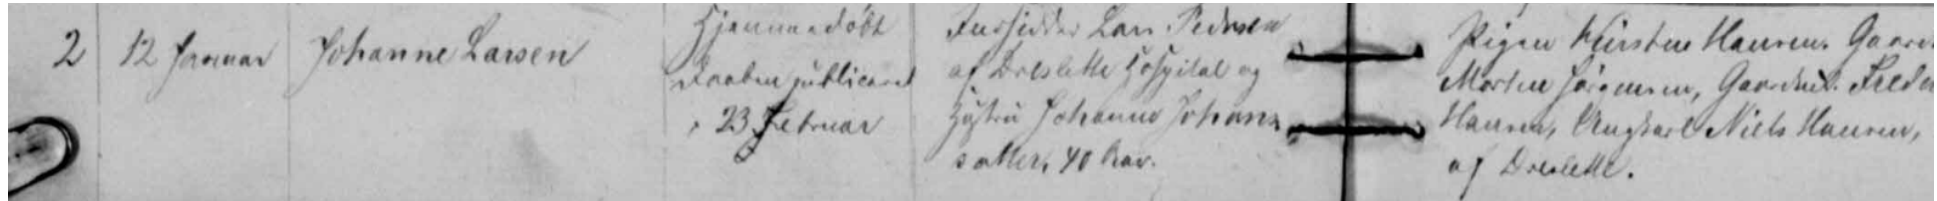 2
12 Januar
Johanne Larsen
Hjemmedøbt
Daaben publiceret
23 Februar
Indsidder Lars Pedersen
af Dreslette Hospital og
Hustru Johanne Johans
datter, 40 Aar.
Pigen Kirsten Hansen, Gaard
Morten Jørgensen, Gaardm. Freder
Hansen, Ungkarl Niels Hansen,
af Dreslette.